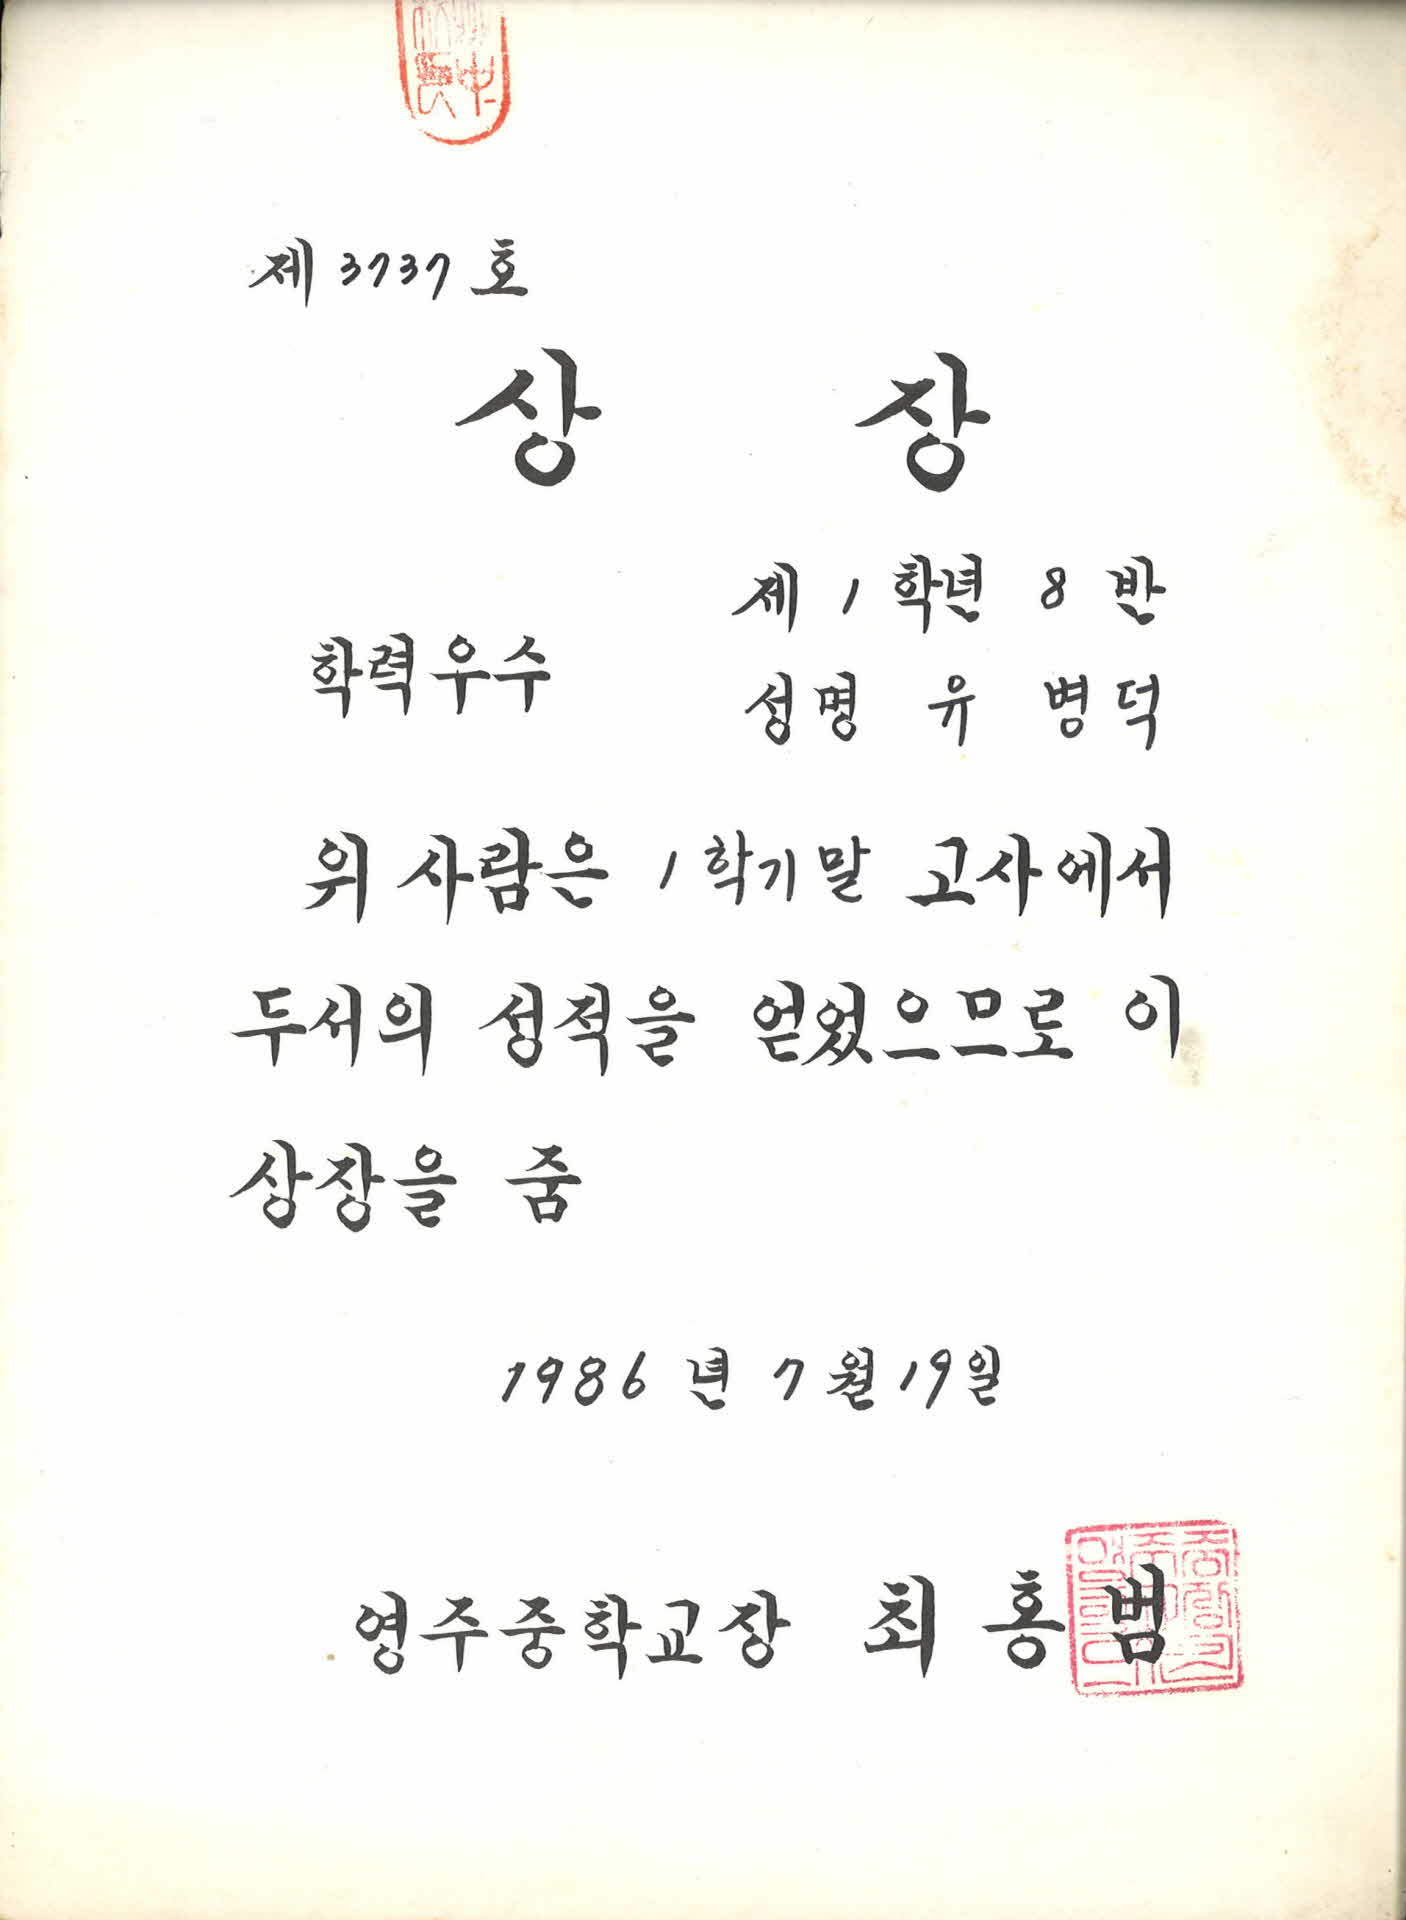 제 3737 호
상 장
제 1 학년 8 반
학력우수
성명 유 병덕
위 사람은 1학기말 고사에서
두서의 성적을 얻었으므로 이
상장을 줌
1986 년 7 월 19 일
영주중학교장 최홍범